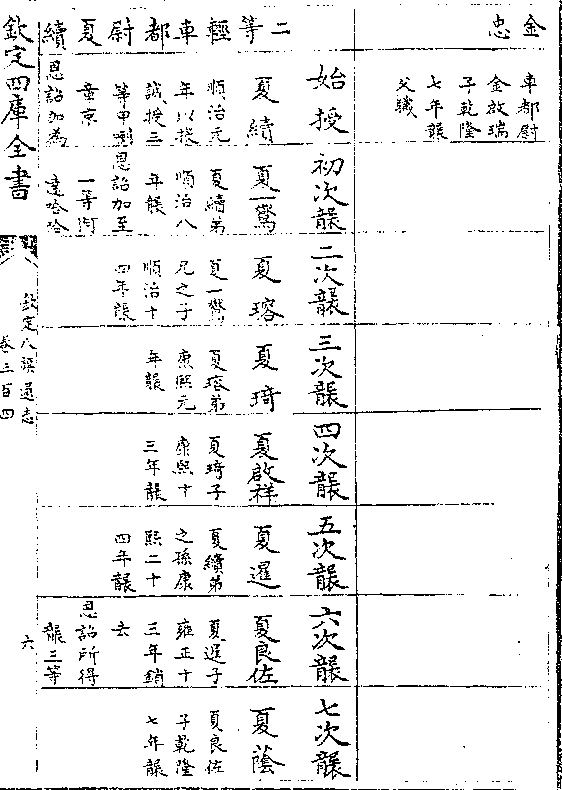 金忠
車都尉
金啟瑞
子乾隆
七年襲
父職
二等輕車都尉夏續
始授
夏續
順治元
年以投
誠授三
等甲喇
章京
恩詔加為
初次襲
夏一鶚
夏續弟
順治八
年襲
恩詔加至
一等阿
達哈哈
二次襲
夏瑢
夏一鶚
兄之子
順治十
四年襲
三次襲
夏琦
夏瑢弟
康熙元
年襲
四次襲
夏啟祥
夏琦子
康熙十
三年襲
五次襲
夏暹
夏續弟
之孫康
熙二十
四年襲
六次襲
夏良佐
夏暹子
雍正十
三年銷
去
恩詔所得
襲三等
七次襲
夏蔭
夏良佐
子乾隆
七年襲
欽定四庫全書
欽定八旗通志
卷三百四
六